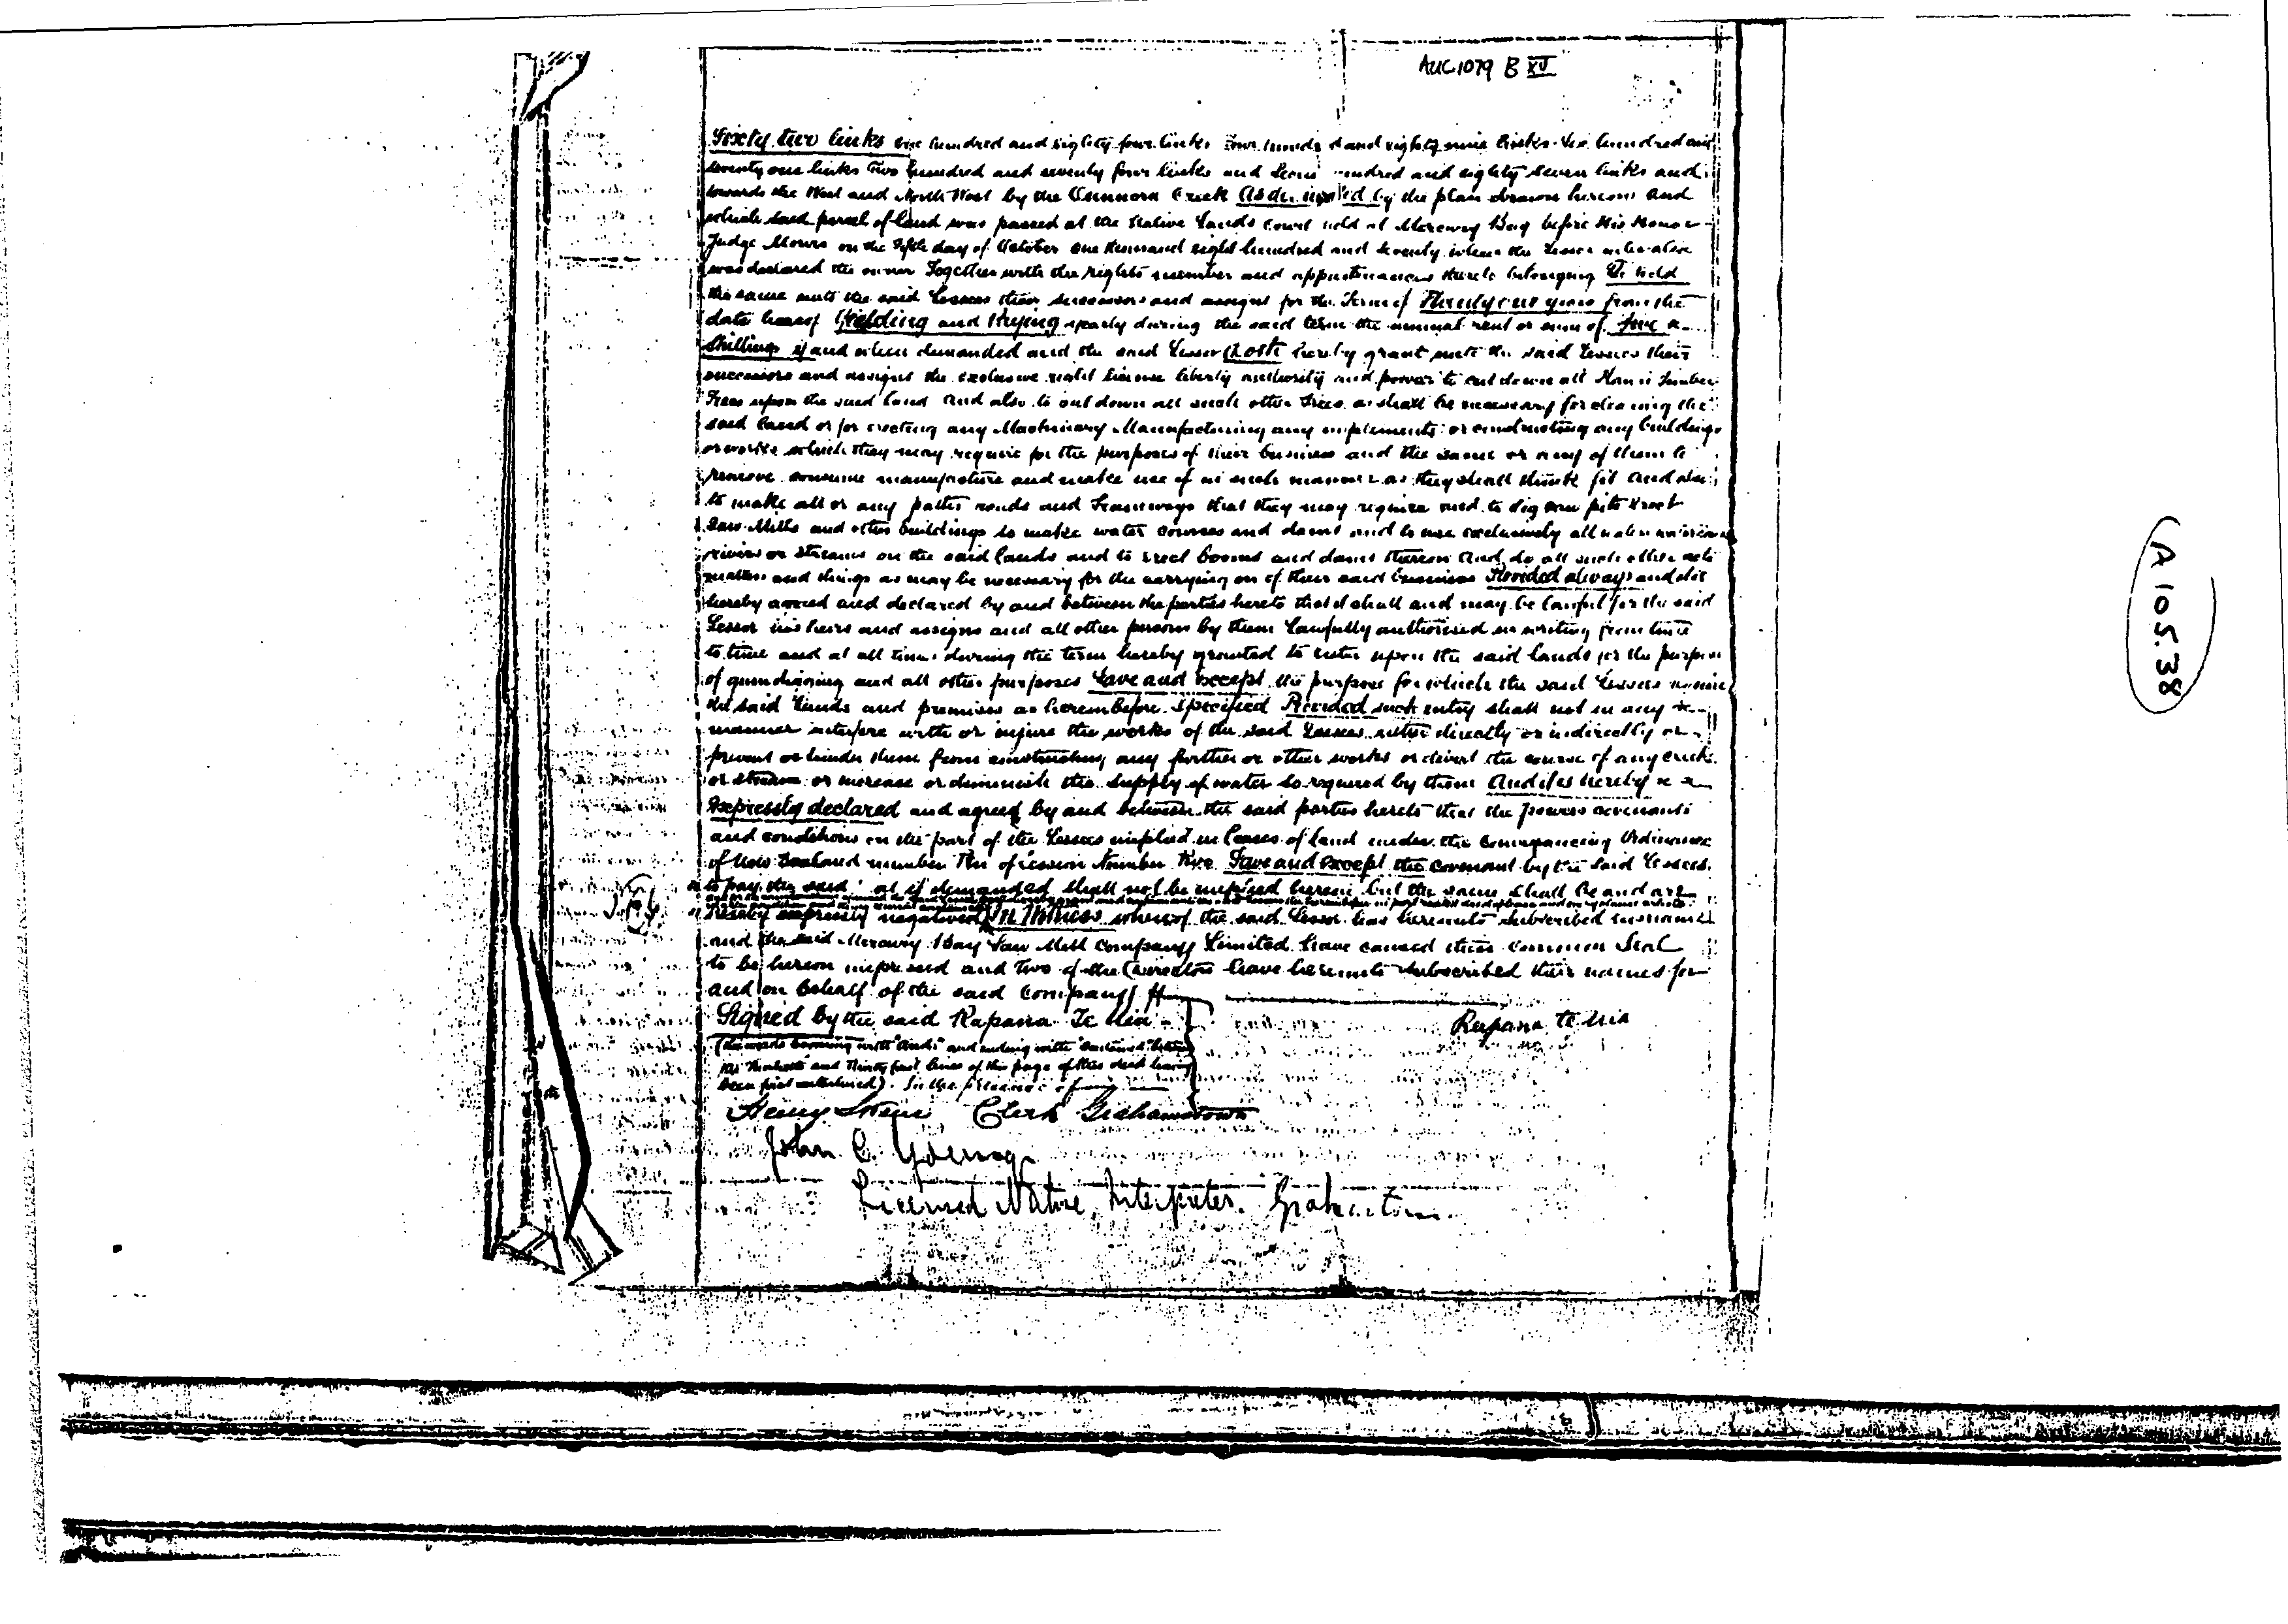 AUC 1079 B XV
Sixty two links one hundred and eighty four links Four hundred and eighty nine links Six hundred and
seventy one links Two hundred and seventy four links and hundred and eighty seven links and
towards the West and North West by the Creek As delineated by the plan drawn hereon and
which said parcel of land was passed at the Native Lands Court held at Mercury Bay before His Honor
Judge on the Fifth day of October One thousand eight hundred and seventy when the Lessor
was declared the owner Together with the rights member and appurtenances thereto belonging To hold
the same unto the said Lessees their successors and assigns for the Term of years from the
date hereof Yielding and Paying yearly during the said term the annual rent or sum of
Shillings if and when demanded and the said Lessor Doth hereby grant unto the said Lessees their
successors and assigns the exclusive right license liberty authority and power to cut down all Kauri Timber
Trees upon the said land And also to cut down all such other Trees as shall be necessary for clearing the
said land or for erecting any Machinery Manufacturing any implements or constructing any buildings
or works which they may require for the purposes of their business and the same or any of them to
remove consume manufacture and make use of in such manner as they shall think fit And also
to make all or any paths roads and Tramways that they may require and to dig saw pits erect
Saw Mills and other buildings to make water courses and dams and to use exclusively all
rivers or streams on the said lands and to erect booms and dams thereon And do all such other acts
matters and things as may be necessary for the carrying on of their said business Provided always and it is
hereby agreed and declared by and between the parties hereto that it shall and may be lawful for the said
Lessor his heirs and assigns and all other persons by them lawfully authorised in writing from time
to time and at all times during the term hereby granted to enter upon the said lands for the purpose
of gumdigging and all other purposes Save and except the purpose for which the said Lessees require
the said lands and premises as hereinbefore specified Provided such entry shall not in any
manner interfere with or injure the works of the said Lessees either directly or indirectly or
prevent or hinder them from constructing any further or other works or divert the course of any creek
or stream or increase or diminish the supply of water so required by them And it is hereby
expressly declared and agreed by and between the said parties hereto that the powers covenants
and conditions on the part of the Lessees implied in leases of land under the Conveyancing Ordinance
of New Zealand number Ten of Session Number Two Save and except the covenant by the said Lessees
to pay the said if demanded shall not be implied herein but the same shall be and are
hereby expressly negatived In Witness whereof the said Lessor has hereunto subscribed his name
and the said Mercury Bay Saw Mill Company Limited have caused their Common Seal
to be hereon impressed and two of the Directors have hereunto subscribed their names for
and on behalf of the said Company
Signed by the said Rapana Te
Rapana te
(the words beginning with "And" and ending with
and Thirty first lines of this page of this deed having
been first interlined). In the presence of
Henry Clerk Grahamstown
John C. Young
Licensed Native Interpreter. Grahamstown
A 105.38